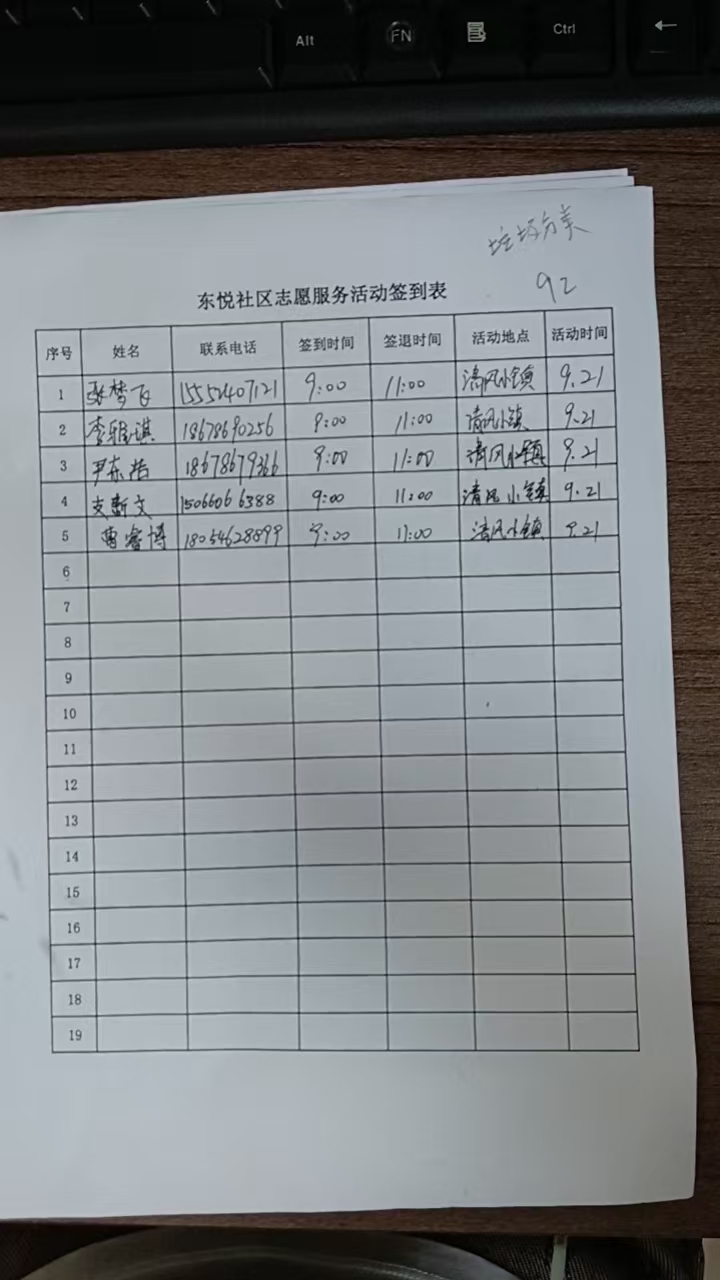 Alt FN Ctrl
垃圾分类
92
东悦社区志愿服务活动签到表
序号 姓名 联系电话 签到时间 签退时间 活动地点 活动时间
1 张梦飞 15552407121 9:00 11:00 清风小镇 9.21
2 李雅琪 18678690256 9:00 11:00 清风小镇 9.21
3 尹东浩 18678679366 9:00 11:00 清风小镇 9.21
4 支新文 15066066388 9:00 11:00 清风小镇 9.21
5 曹睿博 18054628899 9:00 11:00 清风小镇 9.21
6
7
8
9
10
11
12
13
14
15
16
17
18
19